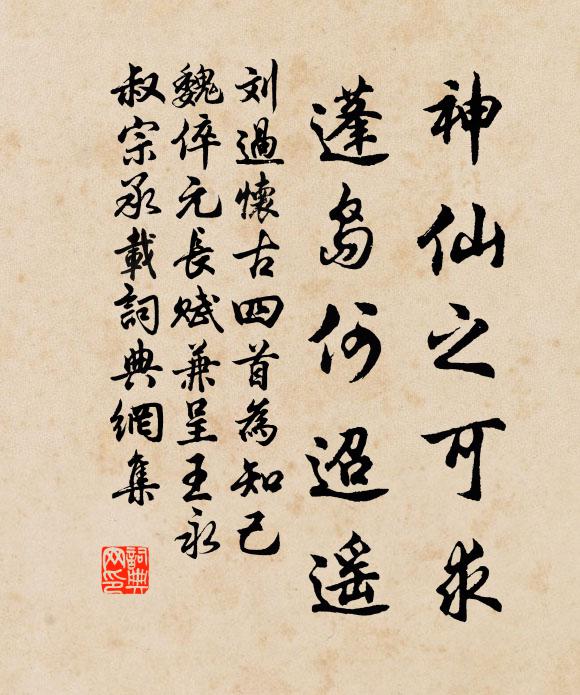 神仙之可求
蓬岛何迢遥
刘過懷古四首為知己
魏倅元長赋兼呈王永
叔宗丞載詞典網集
詞典网印